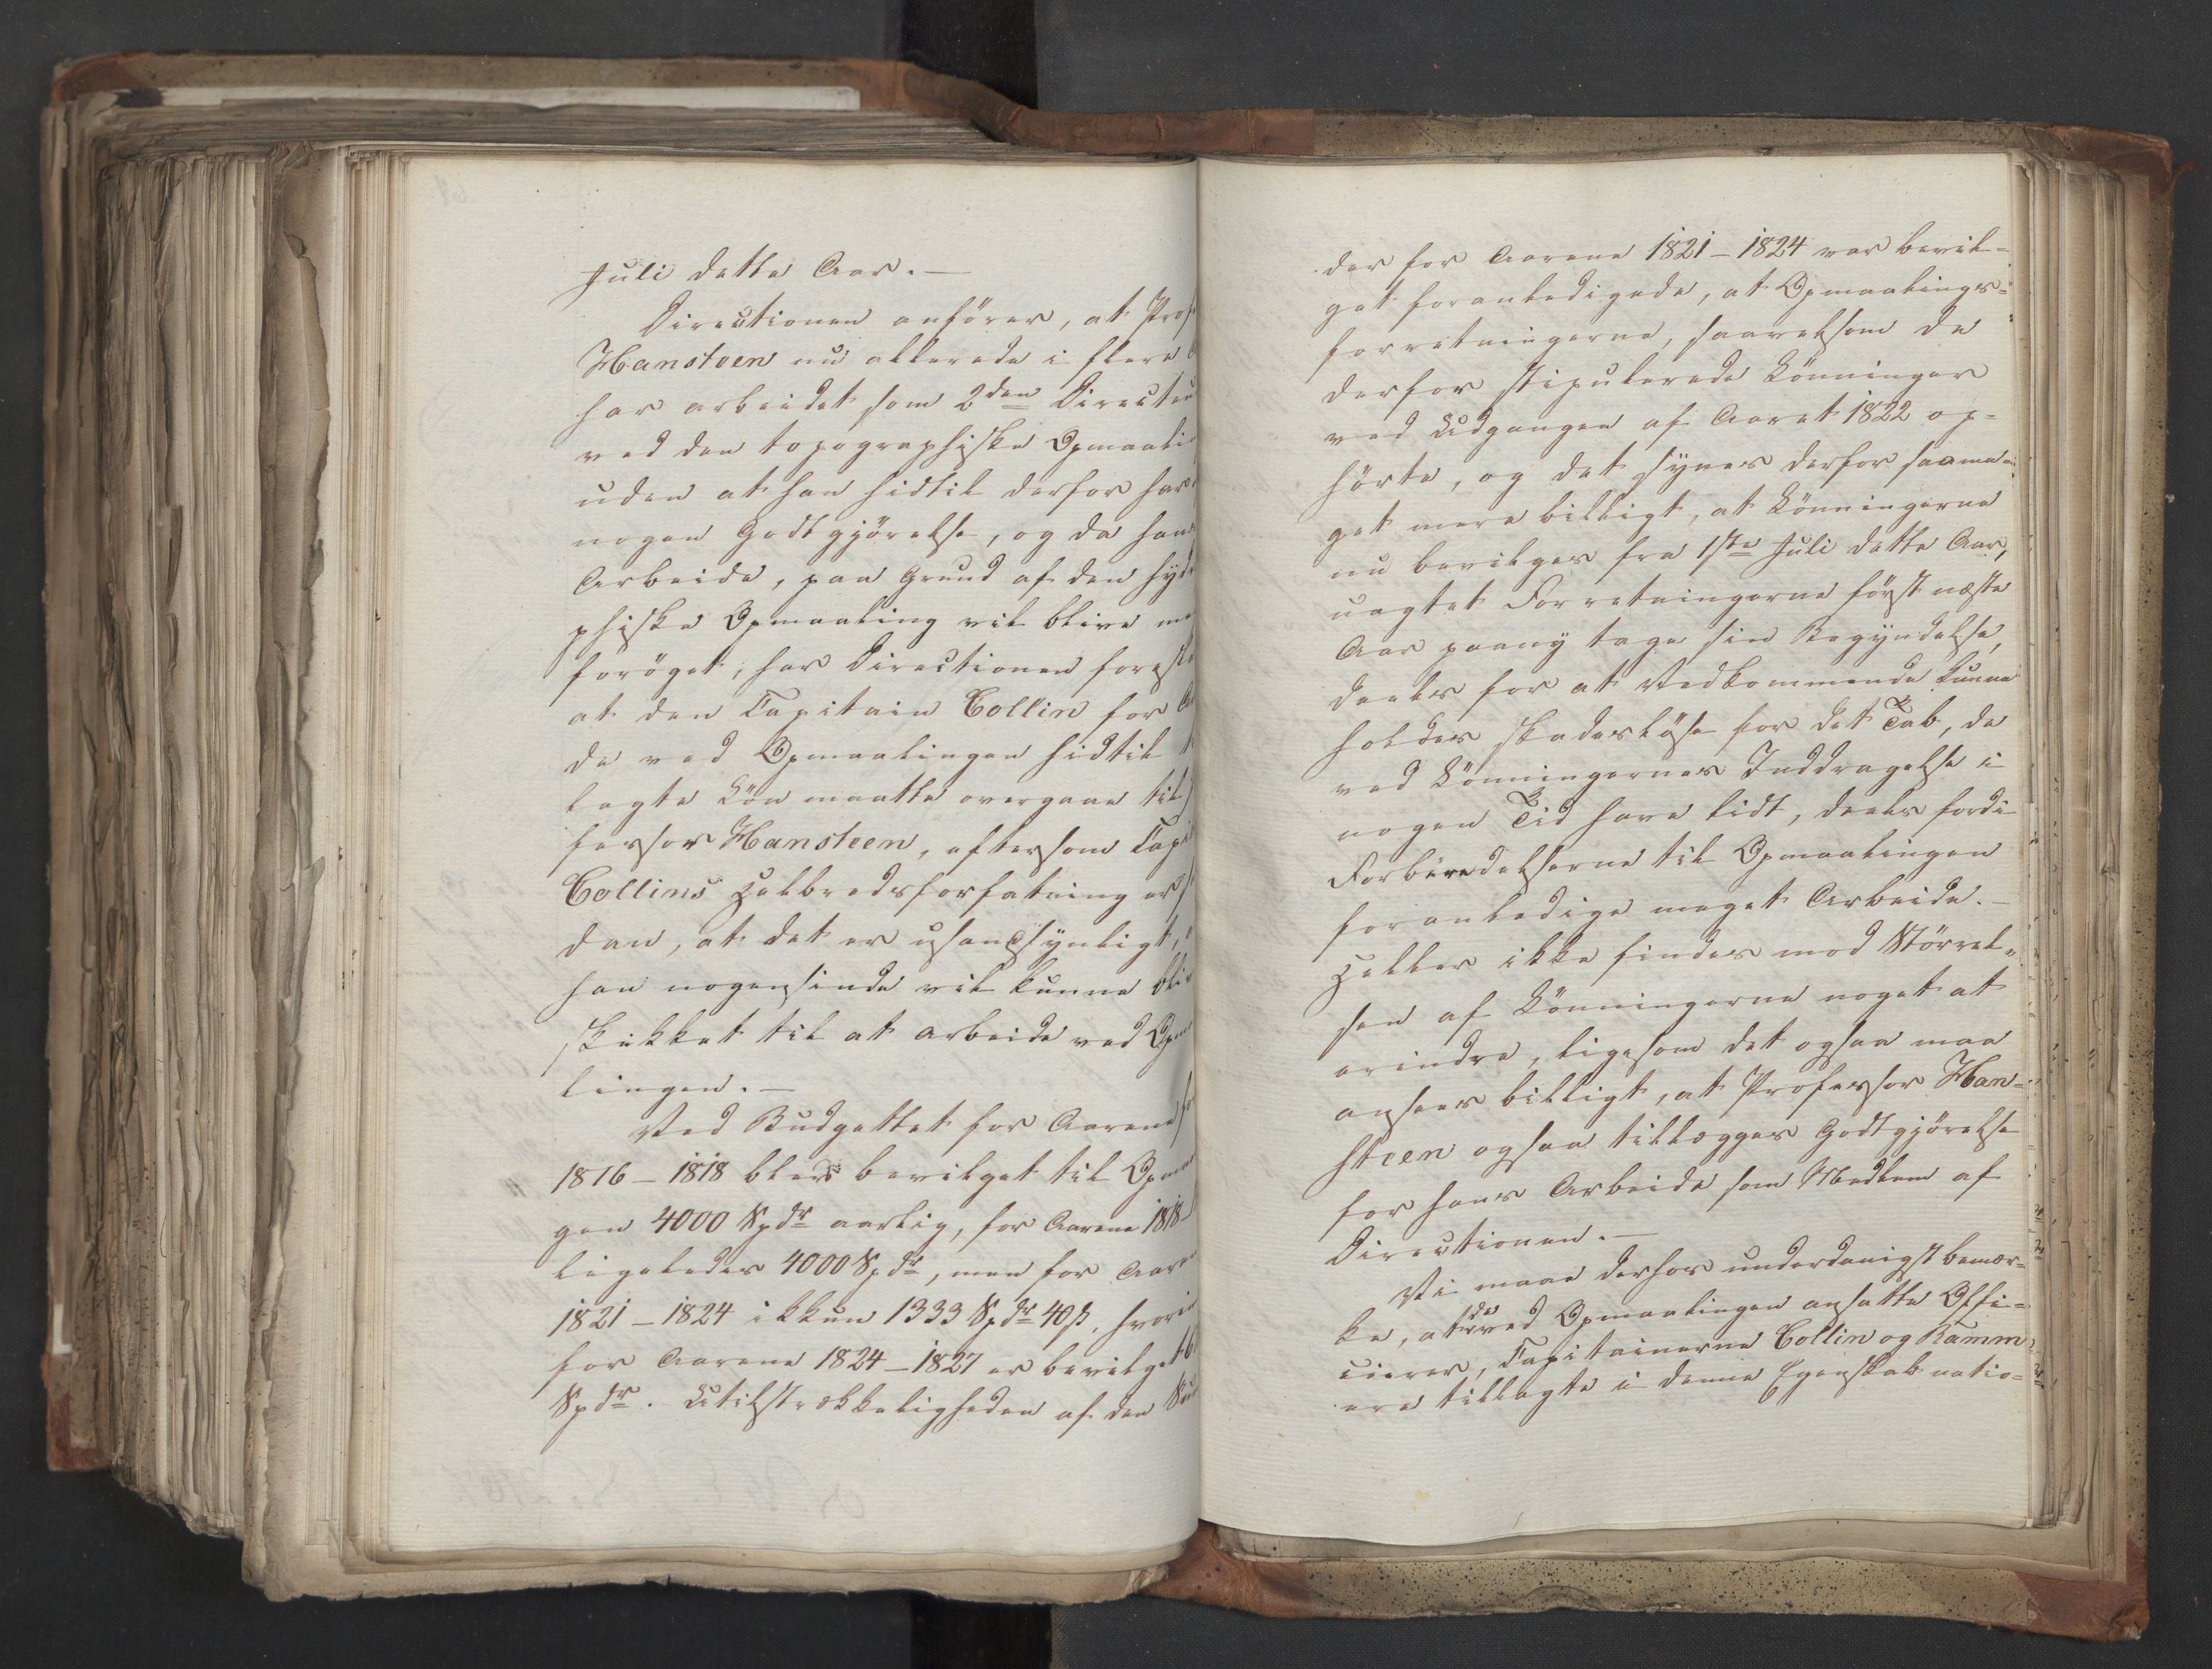 Juli dette Aar. —
Directionen anfører, at Prof
Hansteen nu allerede i flere
har arbeidet som 2den Directeu
ved den topographiske Opmaali
uden at han hidtil derfor har
nogen Godtgjörelse, og da han
Arbeide, paa Grund af den hyd
phiske Opmaaling vil blive me
foröget, har Directionen foresl
at den Capitain Collin for
de ved Opmaalingen hidtil
lagte Lön maatte overgaae til
fessor Hansteen, eftersom Capi
Collins Helbredsforfatning er
dan, at det er usandsynligt,
han nogensinde vil kunne bli
skikket til at arbeide ved Opm
lingen. —
Ved Budgettet for Aarene
1816 – 1818 blev bevilget til Opma
gen 4000 Spdr aarlig, for Aarene 1818 –
ligeledes 4000 Spdr, men for Aare
1821 – 1824 ikkun 1333 Spdr 40 ß, hvori
for Aarene 1824 – 1827 er bevilget
Spdr. Utilstrækkeligheden af den
der for Aarene 1821 – 1824 var bevil=
get foranledigede, at Opmaalings=
forretningerne, saavelsom de
derfor stipulerede Lönninger
ved Udgangen af Aaret 1822 op=
hörte, og det synes derfor saame=
get mere billigt, at Lönningerne
nu bevilges fra 1ste Juli dette Aar,
uagtet Forretningerne först næste
Aar paany tage sin Begyndelse,
deels for at Vedkommende kunne
holdes skadeslöse for det Tab, de
ved Lönningernes Inddragelse i
nogen Tid have lidt, deels fordi
Forberedelserne til Opmaalingen
foranledige meget Arbeide. —
Heller ikke findes mod Störrel=
sen af Lönningerne noget at
erindre, ligesom det ogsaa maa
ansees billigt, at Professor Han=
steen ogsaa tillægges Godtgjörelse
for hans Arbeide som Medlem af
Directionen. —
Vi maae derhos underdanigst bemær=
ke, at de ved Opmaalingen ansatte Offi=
cierer, Capitainerne Collin og Ramm
ere tillagte i denne Egenskab natio=